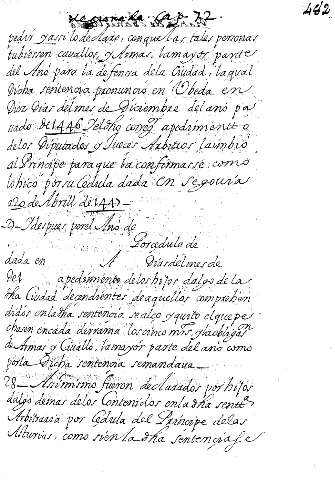 482
vedir y assi lo declaro, con que las tales personas
tubiessen cavallos, y Armas, la mayor parte
del Año para la defensa dela Ciudad, la qual
Dicha sentencia pronuncio en Ubeda en
Diez Dias del mes de Diciembre del año pa
sado de 1446 y el dho a pedimiento
de los Diputados y Jueces Arbitros la imbio
al Principe para que la confirmasse como
lo hico por su Cedula dada en Segovia
a 20 de Abrill de 1447
Y despues, por el Año de
Por cedula de
dada en A Dias del mes de
del a pedimiento de los hijos dalgo de la
dha Ciudad decendientes de aquellos comprehen
didos en la dha sentencia se alço y quito el que pe
chassen en cada derrama los cinco mrs, y la obligaon
de Armas y Cavallo, la mayor parte del año como
por la Dicha sentencia se mandava
28 - Asimismo fueron declarados por hijos
dalgo demas de los Contenidos en la dha sentta
Arbitraria por Cedula del Principe de las
Asturias, como si en la dha sentencia se